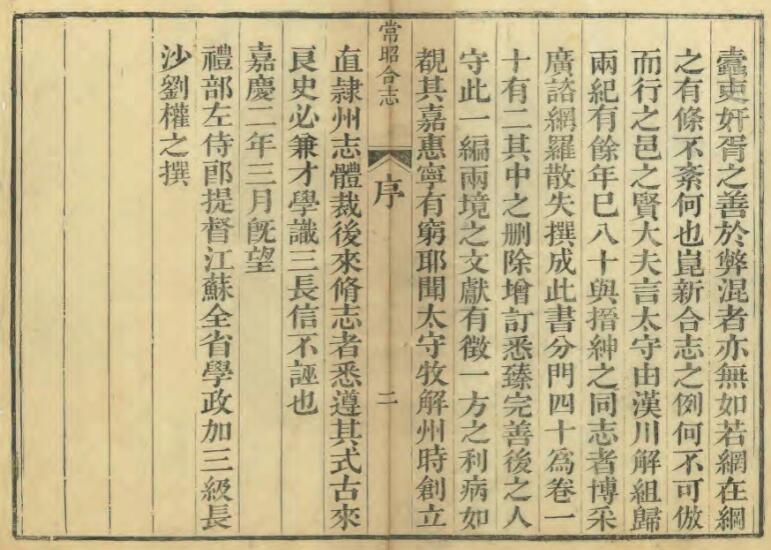 蠹吏奸胥之善於弊混者亦無如若網在綱
之有條不紊何也崑新合志之例何不可倣
而行之邑之賢大夫言太守由漢川解組歸
兩紀有餘年巳八十與搢紳之同志者博采
廣諮網羅散失撰成此書分門四十爲卷一
十有二其中之刪除增訂悉臻完善後之人
守此一編兩境之文獻有徵一方之利病如
覩其嘉惠寧有窮耶聞太守牧解州時創立
常昭合志
序
二
直隷州志體裁後來脩志者悉遵其式古來
良史必兼才學識三長信不誣也
嘉慶二年三月旣望
禮部左侍郎提督江蘇全省學政加三級長
沙劉權之撰